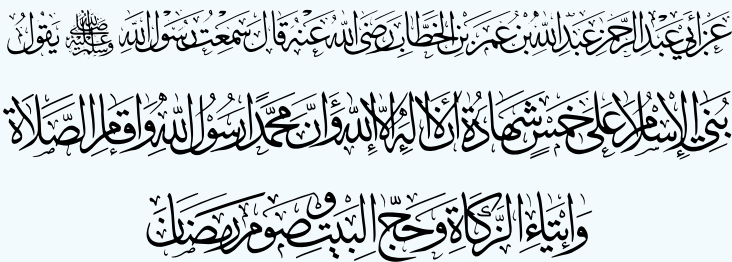 عَنْ أَبِي عَبْدِ الرَّحْمَنِ عَبْدِ اللَّهِ بْنِ عُمَرَ بْنِ الْخَطَّابِ رَضِيَ اللَّهُ عَنْهُ قَالَ سَمِعْتُ رَسُولَ اللَّهِ ﷺ يَقُولُ
بُنِيَ الْإِسْلَامُ عَلَى خَمْسٍ شَهَادَةُ أَنْ لَا إِلَهَ إِلَّا اللَّهُ وَأَنَّ مُحَمَّدًا رَسُولُ اللَّهِ وَإِقَامِ الصَّلَاةِ
وَإِيْتَاءِ الزَّكَاةِ وَحَجِّ الْبَيْتِ وَصَوْمِ رَمَضَانَ